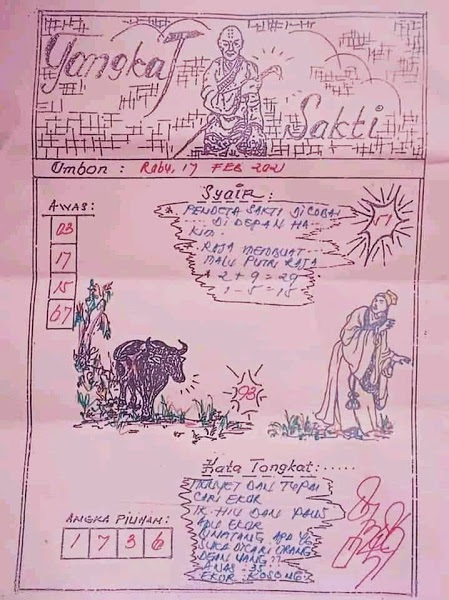 Tongkat
Sakti
Ombon : Rabu, 17 FEB 2021
AWAS:
03
17
15
67
Syair:
PENDETA SAKTI DICOBAI
DI DEPAN HA-
KIM.
RAJA MEMBUAT
MALU PUTRI RAJA
2+9=29
1-5=15
17
93
Kata Tongkat:......
MONYET DAN TUPAI
CARI EKOR
IKAN HIU DAN PAUS
ADU EKOR
BINATANG APA YG
ORANG
ANGKA PILIHAN:
1 7 3 6
EKOR KOSONG?